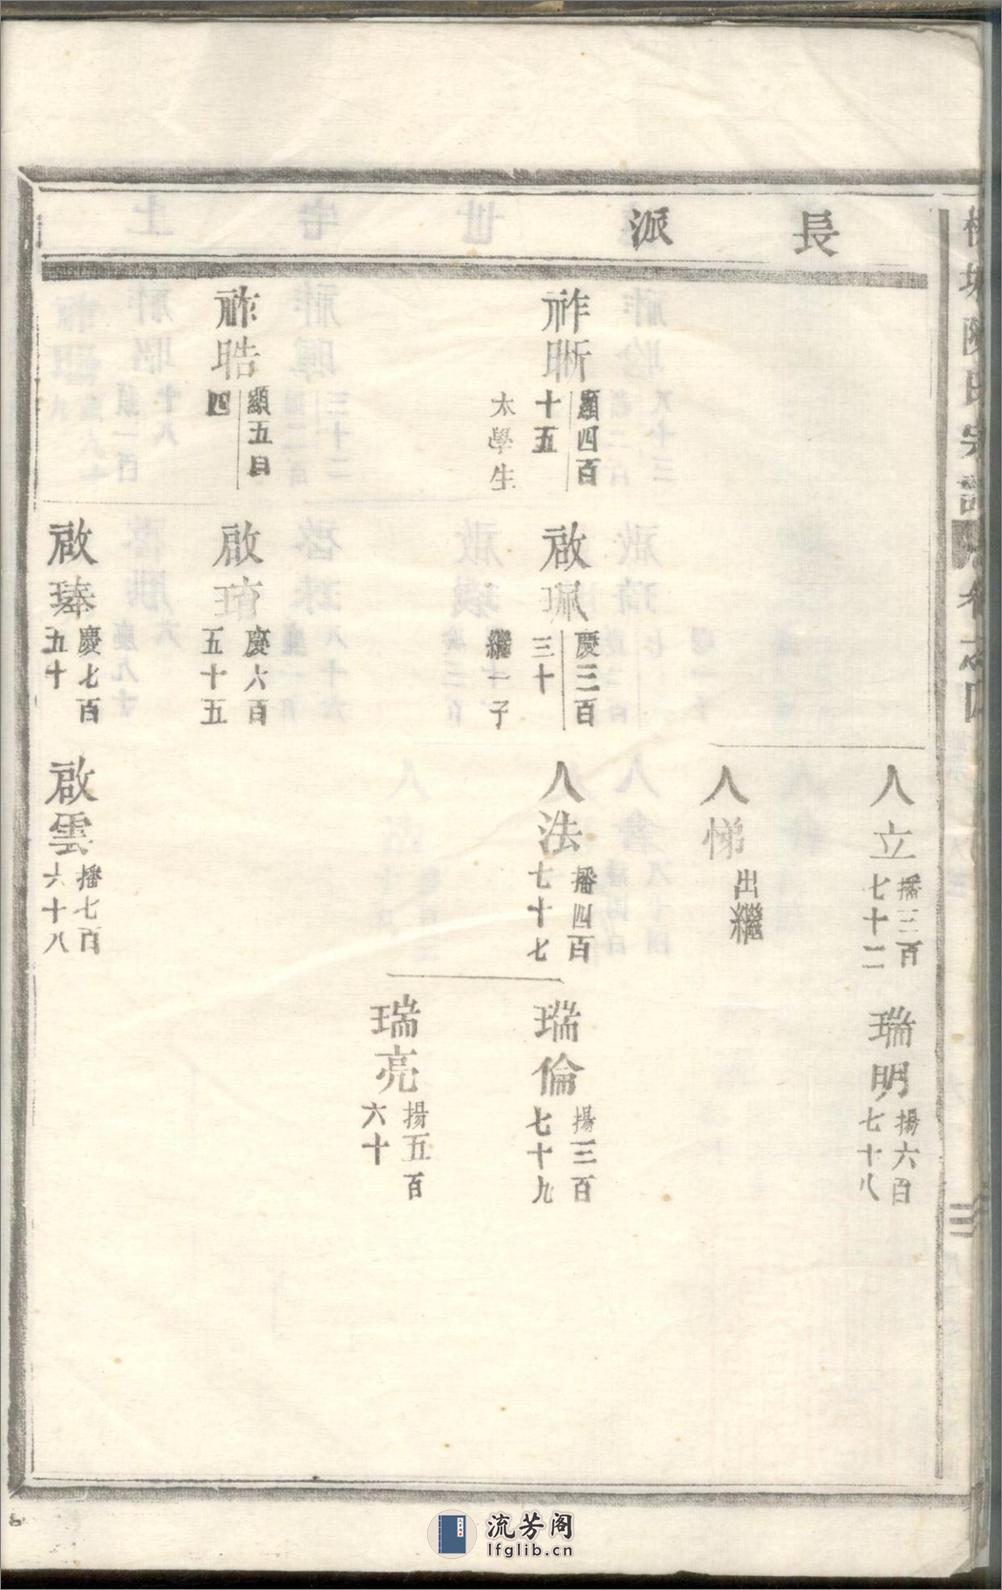 長派
人立
播三百
七十二
瑞明
揚六百
七十八
人悌
出繼
祚晰
顯四百
十五
太學生
啟珮
慶三百
三十
繼一子
人法
播四百
七十七
瑞倫
揚三百
七十九
瑞亮
揚五百
六十
祚晧
顯五百
四
啟
慶六百
五十五
啟
慶七百
五十
啟雲
播七百
六十八
流芳阁
lfglib.cn